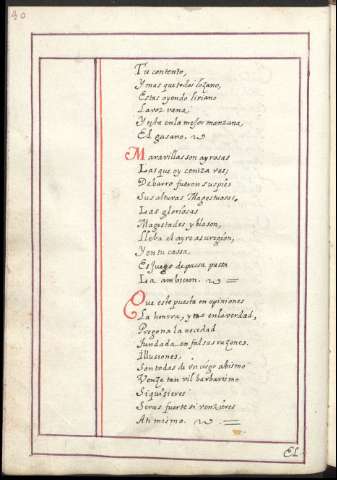 40
Tu contento,
Y mas que todos loçano,
Estas oyendo liviano
La voz vana
Y esta en la mejor manzana,
El gusano.
Maravillas son ayrosas
Las que oy ceniza ves;
De barro fueron sus pies
Sus alturas Magestuosas,
Las gloriosas
Magestades y blason,
lleba el ayre a su region,
Y en tu cassa
Es juego de passa passa
La ambicion.
Que este puesta en opiniones
La honrra, y no en la verdad,
Pregona la necedad
fundada en falsas razones.
Illuciones,
Son todas de un ciego abismo
Venze tan vil barbarismo
Si quisieres
Seras fuerte si venzieres
A ti mismo.
El